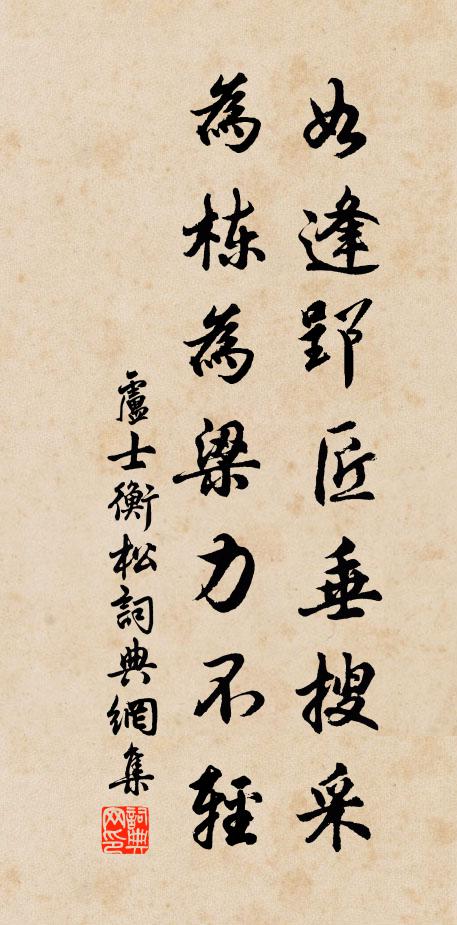 如逢郢匠垂搜采
為棟為梁力不輕
盧士衡松詞典網集
詞典网印